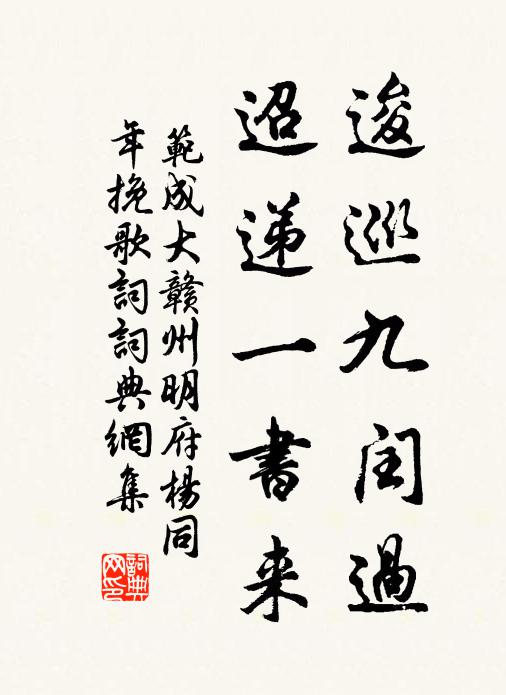 逡巡九闰過
迢递一書来
範成大赣州明府楊同
年挽歌詞詞典網集
詞典网印